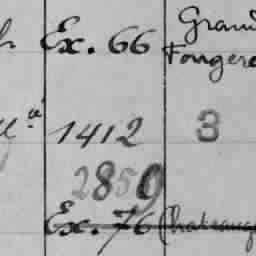 Ex. 66 Grand
Fougere
1412 3
2850
Ex. 76 Chateaug